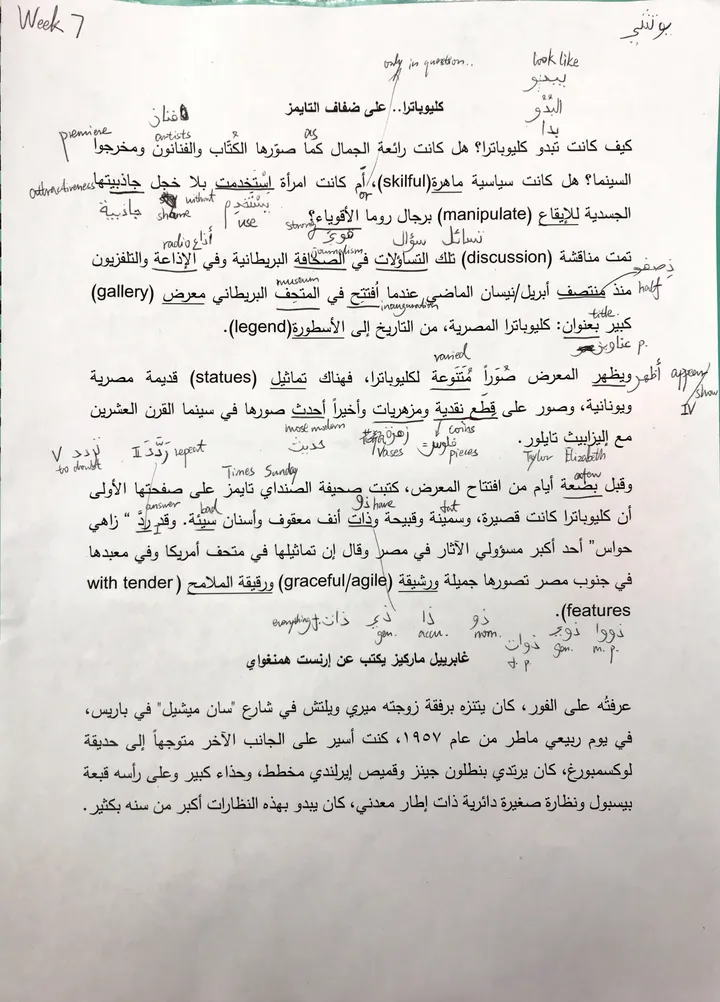 Week 7
only in question..
look like
يبدو
البدو
بدا
كليوباترا.. على ضفاف التايمز
فنان
premiere
artists
as
كيف كانت تبدو كليوباترا؟ هل كانت رائعة الجمال كما صوّرها الكتّاب والفنانون ومخرجوا
السينما؟ هل كانت سياسية ماهرة(skilful)، أم كانت امرأة إستخدمت بلا خجل جاذبيتها
attractiveness
or
without
shame
جاذبية
يستخدم
use
الجسدية للإيقاع (manipulate) برجال روما الأقوياء؟
strong
radio أذاع
سؤال
تسائل
journalism
تمت مناقشة (discussion) تلك التساؤلات في الصحافة البريطانية وفي الإذاعة والتلفزيون
half
museum
منذ منتصف أبريل/نيسان الماضي عندما اُفتتح في المتحف البريطاني معرض (gallery)
inauguration
title.
كبير بعنوان: كليوباترا المصرية، من التاريخ إلى الأسطورة(legend).
p. عناوين
varied
أظهر
appear/
show
IV
ويظهر المعرض صُوَراً مُتَنَوعة لكليوباترا، فهناك تماثيل (statues) قديمة مصرية
ويونانية، وصور على قِطَع نقدية ومزهريات وأخيراً أحدث صورها في سينما القرن العشرين
most modern
حديث
vases
فلوس =
coins
pieces
مع إليزابيث تايلور.
Taylor Elizabeth
V تردد
to doubt
II رَدَّدَ repeat
Times Sunday
a few
وقبل بضعة أيام من افتتاح المعرض، كتبت صحيفة الصنداي تايمز على صفحتها الأولى
answer
bad
have
fat
أن كليوباترا كانت قصيرة، وسمينة وقبيحة وذات أنف معقوف وأسنان سيئة. وقد ردَّ " زاهي
I
حواس" أحد أكبر مسؤولي الآثار في مصر وقال إن تماثيلها في متحف أمريكا وفي معبدها
في جنوب مصر تصورها جميلة ورشيقة (graceful/agile) ورقيقة الملامح (with tender
features).
everything f. ذات
ذي
gen.
ذا
accu.
ذو
nom.
ذوات
f. p.
ذوي
gen.
ذووا
m. p.
غابرييل ماركيز يكتب عن إرنست همنغواي
عرفتُه على الفور، كان يتنزه برفقة زوجته ميري ويلتش في شارع "سان ميشيل" في باريس،
في يوم ربيعي ماطر من عام ١٩٥٧، كنت أسير على الجانب الآخر متوجهاً إلى حديقة
لوكسمبورغ، كان يرتدي بنطلون جينز وقميص إيرلندي مخطط، وحذاء كبير وعلى رأسه قبعة
بيسبول ونظارة صغيرة دائرية ذات إطار معدني، كان يبدو بهذه النظارات أكبر من سنه بكثير.